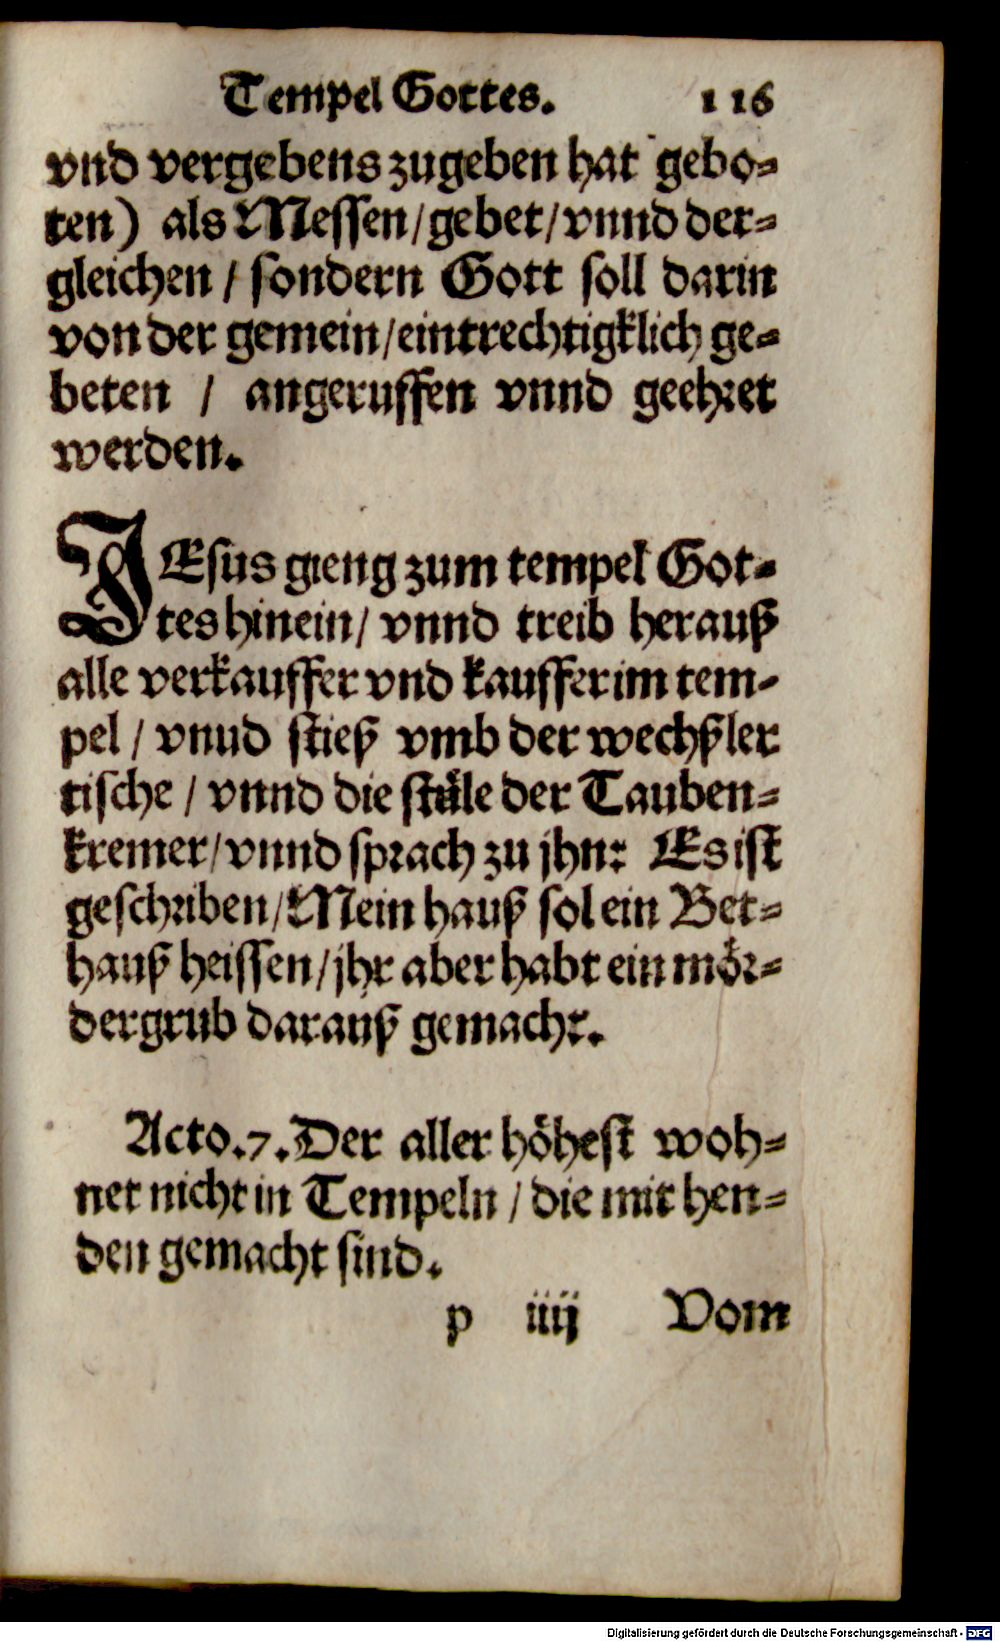 Tempel Gottes. 116
vnd vergebens zugeben hat gebo-
ten) als Messen/gebet/vnnd der-
gleichen / sondern Gott soll darin
von der gemein/eintrechtigklich ge-
beten / angeruffen vnnd geehret
werden.
JEsus gieng zum tempel Got-
tes hinein/ vnnd treib herauß
alle verkauffer vnd kauffer im tem-
pel / vnnd stieß vmb der wechßler
tische / vnnd die stüle der Tauben-
kremer/vnnd sprach zu jhn: Es ist
geschriben/Mein hauß sol ein Bet-
hauß heissen/jhr aber habt ein mör-
dergrub darauß gemacht.
Acto.7.Der aller höhest woh-
net nicht in Tempeln / die mit hen-
den gemacht sind.
p iiij Vom
Digitalisierung gefördert durch die Deutsche Forschungsgemeinschaft - DFG